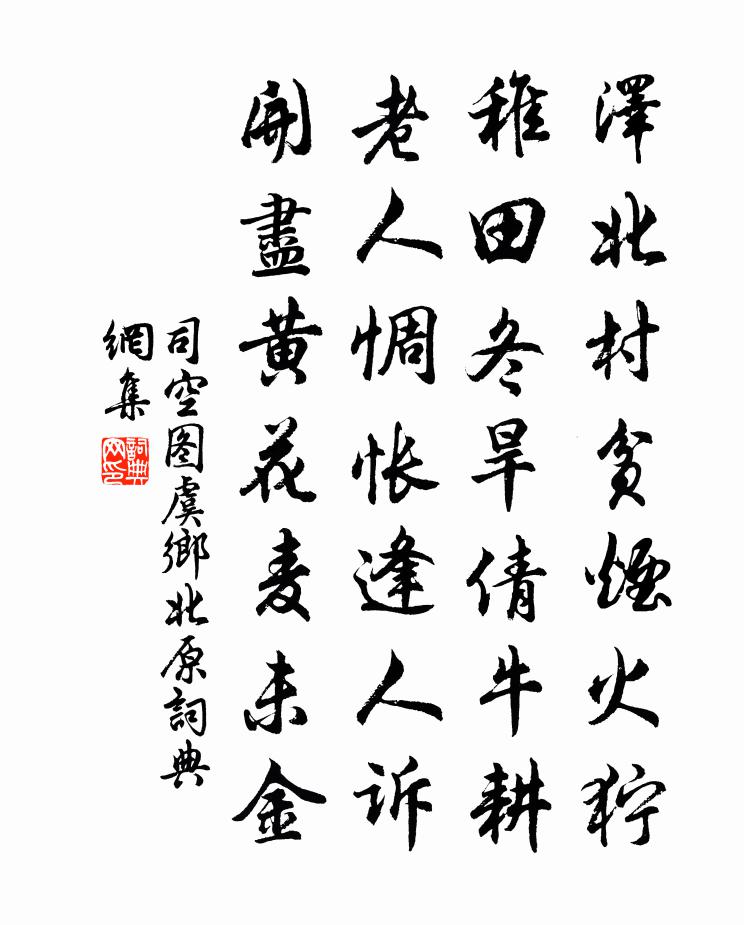 澤北村貧煙火狞
稚田冬旱倩牛耕
老人惆怅逢人诉
開盡黄花麦未金
司空图虞鄉北原詞典
網集
詞典网印